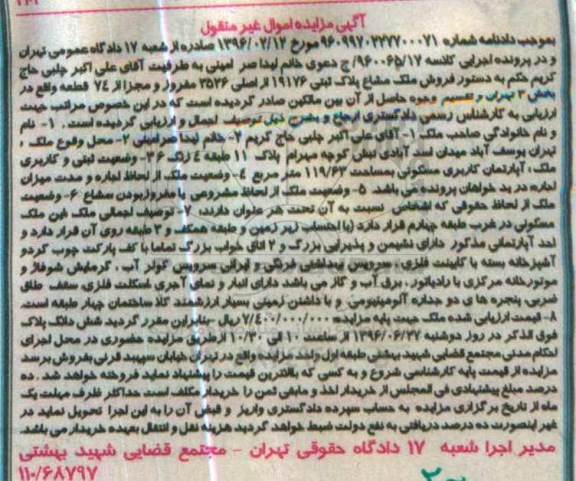 آگهی مزایده اموال غیر منقول
بموجب دادنامه شماره ۹۶۰۹۹۷۰۲۲۷۷۰۰۰۷۱ مورخ ۱۳۹۶/۰۲/۱۲ صادره از شعبه ۱۷ دادگاه عمومی تهران
و در پرونده اجرایی کلاسه ۹۶۰۰۶۵/۱۷ ج دعوی خانم لیدا صر امینی به طرفیت آقای علی اکبر چلبی حاج
کریم حکم به دستور فروش ملک مشاع پلاک ثبتی ۱۹۱۷۶ از اصلی ۳۵۲۶ مفروز و مجزا از ۷۴ قطعه واقع در
بخش ۳ تهران و تقسیم وجوه حاصل از آن بین مالکین صادر گردیده است که در این خصوص مراتب جهت
ارزیابی به کارشناس رسمی دادگستری ارجاع و بشرح ذیل توصیف اجمال و ارزیابی گردیده است . ۱- نام
و نام خانوادگی صاحب ملک ۱- آقای علی اکبر چلبی حاج کریم ۲- خانم لیدا صرامینی ۲- محل وقوع ملک ،
تهران یوسف آباد میدان اسد آبادی نبش کوچه مهرام پلاک ۱۱ طبقه ٤ زنگ ۳۶- وضعیت ثبتی و کاربری
ملک ، آپارتمان کاربری مسکونی بمساحت ۱۱۹/۶۳ متر مربع ٤- وضعیت ملک از لحاظ اجاره و مدت میزان
اجاره در ید خواهان پرونده می باشد ۵- وضعیت ملک از لحاظ مشروعی یا مفروز بودن مشاع ۶- وضعیت
ملک از لحاظ حقوقی که اشخاص نسبت به آن تحت هر عنوان دارند، ۷- توصیف اجمالی ملک عین ملک
مسکونی در غرب طبقه چهارم قرار دارد (با احتساب زیر زمین و طبقه همکف و ۳ طبقه روی آن قرار دارد و
احد آپارتمانی مذکور دارای نشیمن و پذیرایی بزرگ و ۲ اتاق خواب بزرگ تماما با کف پارکت چوب گردو
آشپزخانه بسته با کابینت فلزی ، سرویس بهداشتی فرنگی و ایرانی سرویس کولر آب ، گرمایش شوفاژ و
موتورخانه مرکزی با رادیاتور ، برق آب و گاز می باشد دارای انبار و نمای آجری اسکلت فلزی، سقف طاق
ضربی، پنجره ها ی دو جداره آلومینیومی و با داشتن زمینی بسیار ارزشمند کلا ساختمان چهار طبقه است.
۸- قیمت ارزیابی شده ملک جهت پایه مزایده: ۷/۴۰۰/۰۰۰/۰۰۰ ریال -بنابراین مقرر گردید شش دانگ پلاک
فوق الذکر در روز دوشنبه ۱۳۹۶/۰۶/۲۷ از ساعت ۱۰ الی ۱۰/۳۰ از طریق مزایده حضوری در محل اجرای
احکام مدنی مجتمع قضایی شهید بهشتی طبقه اول واحد مزایده واقع در تهران خیابان سپهبد قرنی بفروش برسد
مزایده از قیمت پایه کارشناسی شروع و به کسی که بالاترین قیمت را پیشنهاد نماید فروخته خواهد شد . ده
درصد مبلغ پیشنهادی فی المجلس از خریدار اخذ و مابقی ثمن را خریدار مکلف است حداکثر ظرف مهلت یک
ماه از تاریخ برگزاری مزایده به حساب سپرده دادگستری واریز و قبض آن را به این اجرا تحویل نماید در
غیر اینصورت ده درصد دریافتی به نفع دولت ضبط خواهد گردید هزینه نقل و انتقال بعهده خریدار می باشد.
مدیر اجرا شعبه ۱۷ دادگاه حقوقی تهران - مجتمع قضایی شهید بهشتی
۱۱۰/۶۸۷۹۷